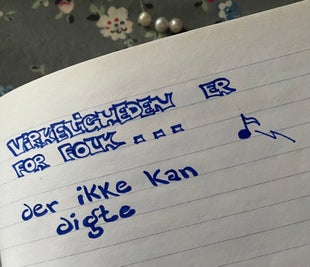 VIRKELIGHEDEN ER
FOR FOLK...
der ikke kan
digte